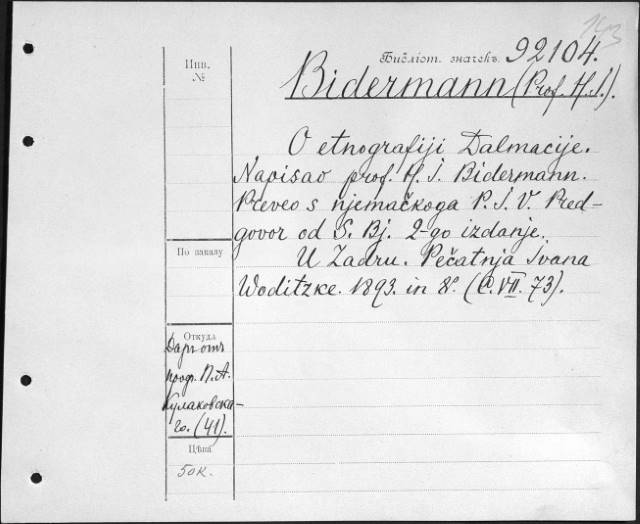 143
Библіот. значекъ 92104.
Инв.
№
Bidermann (Prof. H. I.).
O etnografiji Dalmacije.
Napisao prof. H. I. Bidermann.
Preveo s njemačkoga P. I. V. Pred-
govor od S. Bj. 2-go izdanje.
По заказу
U Zadru. Pečatnja Ivana
Woditzke. 1893. in 8º. (C. VII. 73).
Откуда
Даръ отъ
проф. П. А.
Кулаковска-
го. (41).
Цѣна
50к.